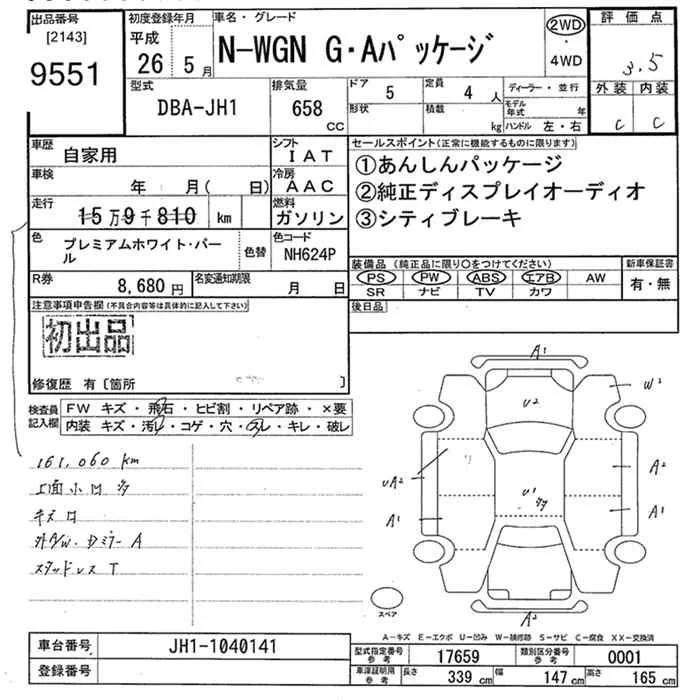 出品番号
[2143]
9551
初度登録年月
平成
26 5月
車名・グレード
N-WGN G・Aパッケージ
2WD
・
4WD
評価点
3.5
外装 内装
C C
型式
DBA-JH1
排気量
658
CC
ドア
5
定員
4 人
形状
積載
kg
ディーラー・並行
モデル年式 年
ハンドル 左・右
車歴
自家用
シフト
IAT
車検
年 月( 日)
冷房
AAC
走行
15万9千810 km
燃料
ガソリン
色
プレミアムホワイト・パール
色替
色コード
NH624P
R券
8,680円
名変通知期限
月 日
セールスポイント(正常に機能するものに限ります)
①あんしんパッケージ
②純正ディスプレイオーディオ
③シティブレーキ
装備品(純正品に限り○をつけてください)
PS PW ABS エアB AW
SR ナビ TV カワ
新車保証書
有・無
後日品
注意事項申告欄(不具合内容等は具体的に記入して下さい)
初出品
修復歴 有〔箇所 〕
検査員記入欄
FW キズ・飛石・ヒビ割・リペア跡・×要
内装 キズ・汚レ・コゲ・穴・スレ・キレ・破レ
161,060 km
キズ
スタッドレス T
A1
U2
W2
A2
UA2
U1
A1
A1
A2
スペア
A-キズ E-エクボ U-凹み W-補修跡 S-サビ C-腐食 XX-交換済
車台番号
JH1-1040141
登録番号
型式指定番号 参考
17659
類別区分番号 参考
0001
車庫証明用 参考
長さ 339 cm
幅 147 cm
高さ 165 cm